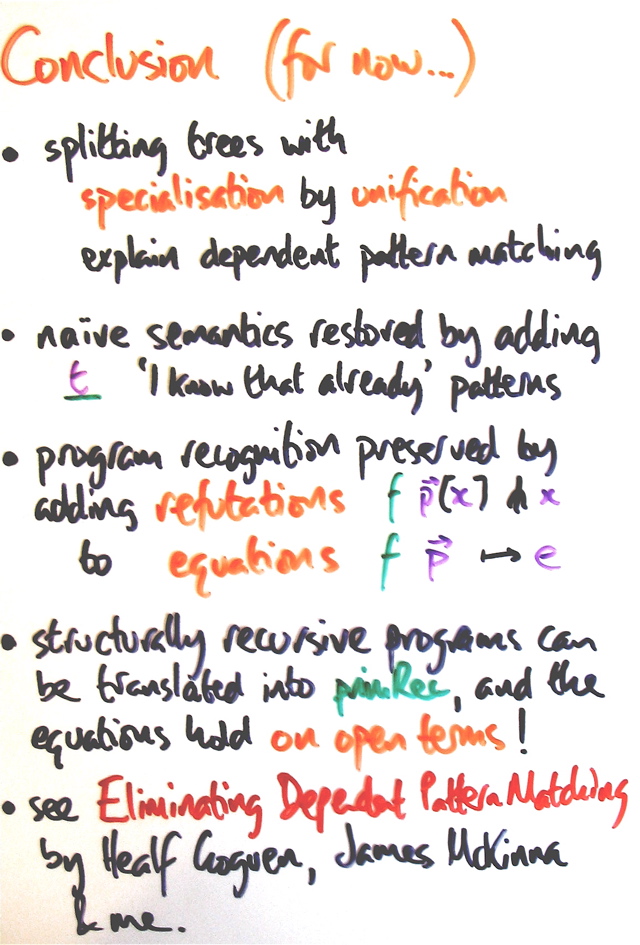 Conclusion (for now...)
• splitting trees with
specialisation by unification
explain dependent pattern matching
• naïve semantics restored by adding
t 'I know that already' patterns
• program recognition preserved by
adding refutations f p⃗[x] ⋔ x
to equations f p⃗ ↦ e
• structurally recursive programs can
be translated into primRec, and the
equations hold on open terms!
• see Eliminating Dependent Pattern Matching
by Healf Goguen, James McKinna
& me.